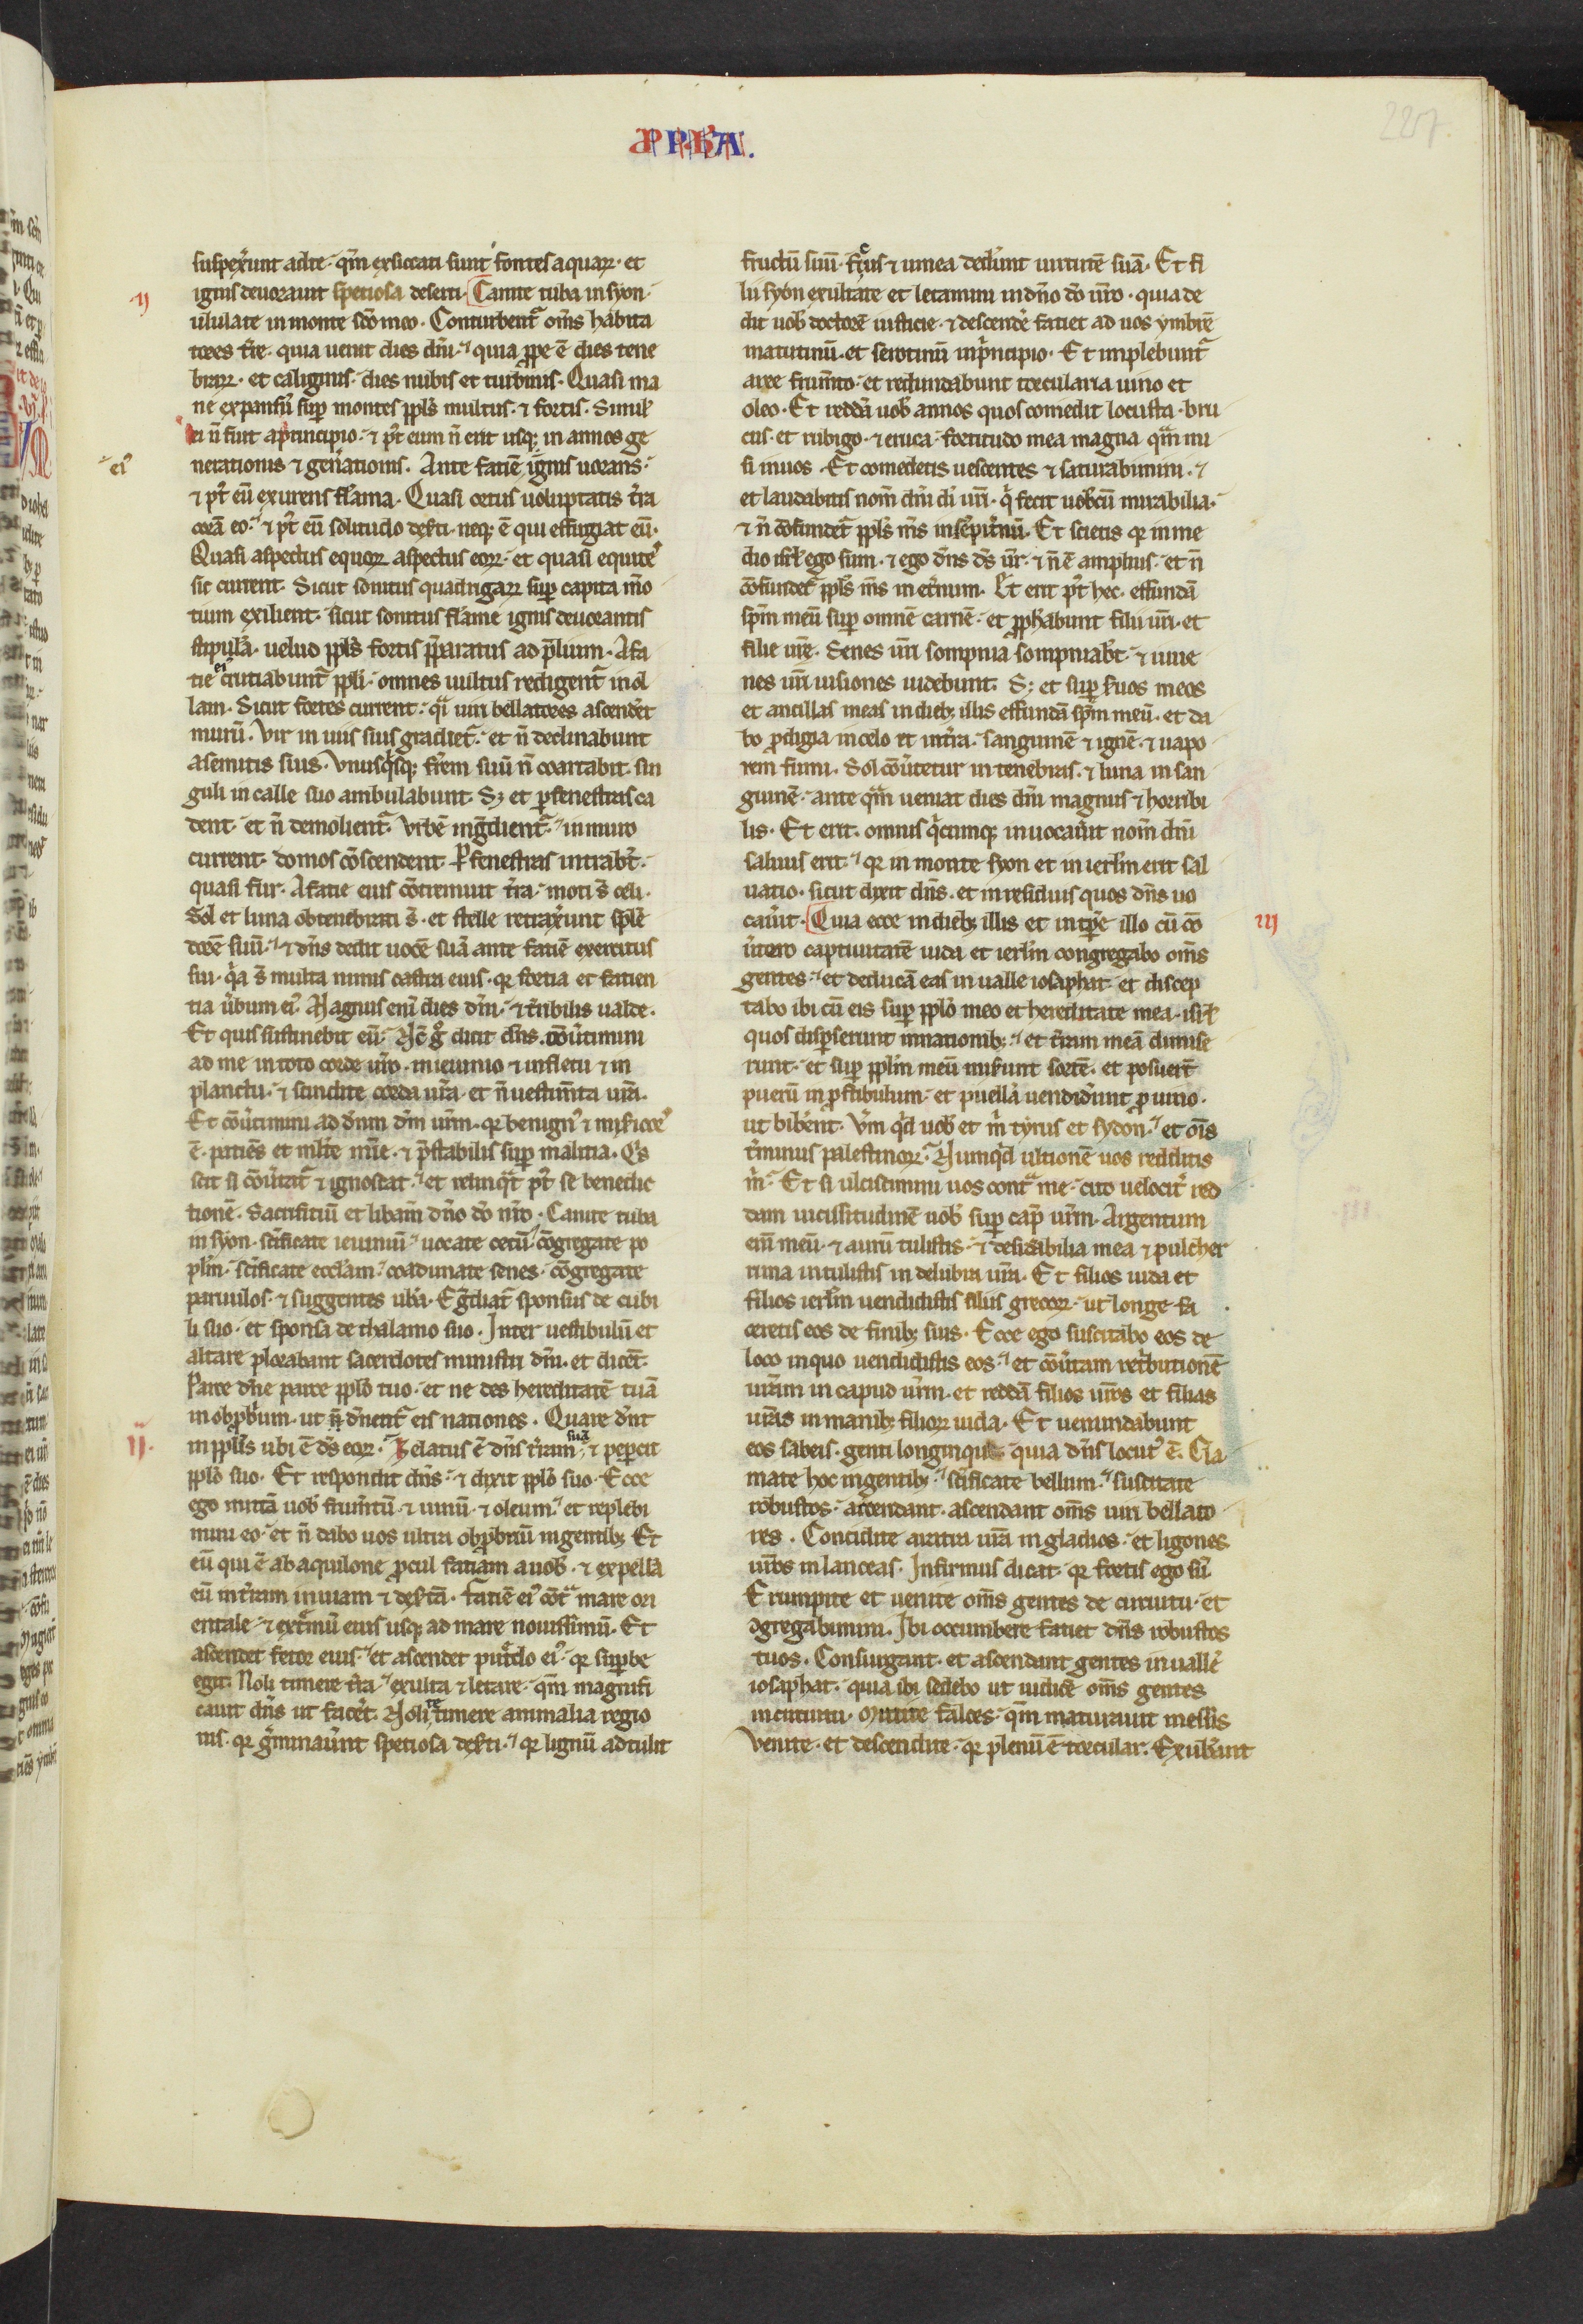 227
suspexerunt adte. qm̄ exsiccati sunt fontes aquaꝝ. et
ignis deuorauit speciosa deserti. Canite tuba in syon.
ij
ululate in monte sc̄o meo. Conturbent᷑ om̄s habita
tores t̄re. quia uenit dies dn̄i. quia ꝓpe ē dies tene
braꝝ. et caliginis. dies nubis et turbinis. Quasi ma
ne expansū sup̄ montes ppl̄s multus. ⁊ fortis. Simil̄
ei n̄ fuit aprincipio. ⁊ p̄t eum n̄ erit usq; in annos ge
nerationis ⁊ gen̄ationis. Ante faciē ignis uorans.
ei᷒
⁊ p̄t eū exurens flāma. Quasi ortus uoluptatis t̄ra
corā eo. ⁊ p̄t eū solitudo deẜti. neq; ē qui effugiat eū.
Quasi aspectus equoꝝ aspectus eoꝝ. et quasi equite᷒
sic current. Sicut sonitus quadrigaꝝ sup̄ capita mo
tium exilient. sicut sonitus flāme ignis deuorantis
stipulā. uelud ppl̄s fortis p̄paratus ad p̄lium. A fa
cie ei᷒ cruciabunt᷑ ppl̄i. omnes uultus redigent᷑ in ol
lam. Sicut fortes current. q̄i uiri bellatores ascendēt
murū. Vir in uiis suis gradiet᷑. et n̄ declinabunt
asemitis suis. Vnusq̄sq; fr̄em suū n̄ coartabit. sin
guli in calle suo ambulabunt. Sꝫ et ꝑ fenestras ca
dent. et n̄ demolient᷑. Vrbē ing̃dient᷑. in muro
current. domos cōscendent. ꝑ fenestras intrab̄t.
quasi fur. A facie eius cōtremuit t̄ra. moti s̄ celi.
Sol et luna obtenebrati s̄. et stelle retrax̄unt splē
dorē suū. ⁊ dn̄s dedit uocē suā ante faciē exercitus
sui. q̄a s̄ multa nimis castra eius. qꝛ fortia et facien
tia ūbum ei᷒. Magnus eni᷒ dies dn̄i. ⁊ t̄ribilis ualde.
Et quis sustinebit eū. Nc̄ g̊ dicit dn̄s. cōūtimini
ad me in toto corde ūro. in ieiunio ⁊ in fletu ⁊ in
planctu. ⁊ scindite corda ur̄a. et n̄ uestim̄ta ur̄a.
Et cōūtimini ad dn̄m dm̄ ur̄m. qꝛ benign᷒ ⁊ mīicor᷒
ē. patiēs et ml̄te mīe. ⁊ p̄stabilis sup̄ malitia. Q᷒s
scit si cōūtat᷑ ⁊ ignoscat. et relinq̄t p̄t se benedic
tionē. Sacrificiū et libam̄ dn̄o do ūro. Canite tuba
in syon. sc̄ificate ieiuniū. uocate cetū. cōgregate po
pl̄m. sc̄ificate eccl̄am. coadunate senes. cōgregate
paruulos. ⁊ suggentes ub̄a. Eg̃diat᷑ sponsus de cubi
li suo. et sponsa de thalamo suo. Inter uestibulū et
altare plorabant sacerdotes ministri dn̄i. et dicēt.
Parce dn̄e parce ppl̄o tuo. et ne des hereditatē tuā
in obprb̄ium. ut n̄ dn̄ent᷑ eis nationes. Quare dn̄t
in ppl̄is ubi ē ds̄ eoꝝ. Zelatus ē dn̄s t̄ram suā. ⁊ pepercit
ij.
ppl̄o suo. Et respondit dn̄s. ⁊ dixit ppl̄o suo. Ecce
ego mittā uob̄ frum̄tū. ⁊ uinū. ⁊ oleum. et replebi
mini eo. et n̄ dabo uos ultra obprb̄riū in gentib; Et
eū qui ē ab aquilone ꝓcul faciam a uob̄. ⁊ expellā
eū in t̄ram inuiam ⁊ deẜtā. faciē ei᷒ cōt̄ mare ori
entale. ⁊ ext̄mū eius usq; ad mare nouissimū. Et
ascendet fetor eius. et ascendet put̄do ei᷒. qꝛ sup̄be
egit. Noli timere t̄ra. exulta ⁊ letare. qm̄ magnifi
cauit dn̄s ut facēt. Nolite timere animalia regio
nis. qꝛ g̃minaūnt speciosa deẜti. qꝛ lignū adtulit
fructū suū. fic᷒us ⁊ uinea dedūnt uirtutē suā. Et fi
lii syon exultate et letamini in dn̄o do ūro. quia de
dit uob̄ doctorē iusticie. ⁊ descendē faciet ad uos ymbrē
matutinū. et serotinū in p̄ncipio. Et implebunt᷑
aree frum̄to. et redundabunt torcularia uino et
oleo. Et reddā uob̄ annos quos comedit locusta. bru
cus. et rubigo. ⁊ eruca. fortitudo mea magna quā mi
si in uos. Et comedetis uescentes ⁊ saturabimini. ⁊
et laudabitis nom̄ dn̄i di᷒ ur̄i. q̄ fecit uob̄cū mirabilia.
⁊ n̄ cōfundet᷑ ppl̄s ms̄ in sēpit̄nū. Et scietis qꝛ in me
dio isrl̄ ego sum. ⁊ ego dn̄s ds̄ ur̄. ⁊ n̄ ē amplius. et n̄
cōfundet᷑ ppl̄s ms̄ in et̄num. Et erit p̄t hec. effundā
spm̄ meū sup̄ omnē carnē. et ꝓphabunt filii ur̄i. et
filie ur̄ę. Senes ur̄i sompnia sompniab̄t. ⁊ iuue
nes ur̄i uisiones uidebunt. Sꝫ et sup̄ ẜuos meos
et ancillas meas in dieb; illis effundā spm̄ meū. et da
bo ꝓdigia in celo et int̄ra. sanguinē ⁊ ignē. ⁊ uapo
rem fumi. Sol cōūtetur in tenebras. ⁊ luna in san
guinē. ante quā ueniat dies dn̄i magnus ⁊ horribi
lis. Et erit. omnis q̄cumq; inuocaūit nom̄ dn̄i
saluus erit. qꝛ in monte syon et in ierl̄m erit sal
uatio. sicut dixit dn̄s. et in residuis quos dn̄s uo
caūit. Quia ecce in dieb; illis et in tp̄e illo cū cō
iij
ūtero captiuitatē iuda et ierl̄m congregabo om̄s
gentes. et deducā eas in ualle iosaphat. et discep
tabo ibi cū eis sup̄ ppl̄o meo et hereditate mea. isrl̄
quos disp̄serunt in nationib;. et t̄ram meā diuise
runt. et sup̄ ppl̄m meū miẜunt sortē. et posuert̄
puerū in ꝓstibulum. et puellā uendid̄unt ꝓ uino.
ut bib̄ent. Vm̄ q̄d uob̄ et m̄ tyrus et sydon. et ōīs
t̄minus palestinoꝝ. Numq̄d ultionē uos redditis
m̄. Et si ulciscimini uos cont̄ me. cito uelocit̄ red
dam uicissitudinē uob̄ sup̄ cap̄ ur̄m. Argentum
em̄ meū. ⁊ aurū tulistis. ⁊ desid̄abilia mea ⁊ pulcher
rima intulistis in delubra ur̄a. Et filios iuda et
filios ierl̄m uendidistis filiis grecoꝝ. ut longe fa
ceretis eos de finib; suis. Ecce ego suscitabo eos de
loco in quo uendidistis eos. et cōūtam ret̄butionē
ur̄am in capud ur̄m. et reddā filios ur̄os et filias
ur̄as in manib; filioꝝ iuda. Et uenundabunt
eos sabeis. genti longinque quia dn̄s locut᷒ ē. Cla
mate hoc in gentib;. sc̄ificate bellum. suscitate
robustos. accendant. ascendant om̄s uiri bellato
res. Concidite aratra ur̄a in gladios. et ligones
ur̄os in lanceas. Infirmus dicat. qꝛ fortis ego sū.
Erumpite et uenite om̄s gentes de circuitu. et
ꝯgregabimini. Ibi occumbere faciet dn̄s robustos
tuos. Consurgant. et ascendant gentes in uallē
iosaphat. quia ibi sedebo ut iudicē om̄s gentes
in circuitu. Mittite falces. qm̄ maturauit messis
Venite. et descendite. qꝛ plenū ē torcular. Exub̄ant